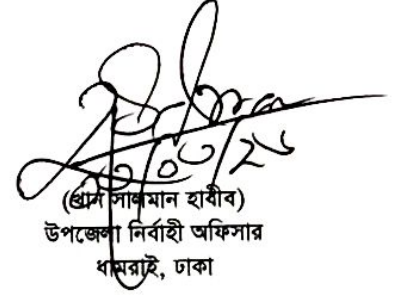 (খান সালমান হাবীব)
উপজেলা নির্বাহী অফিসার
ধামরাই, ঢাকা